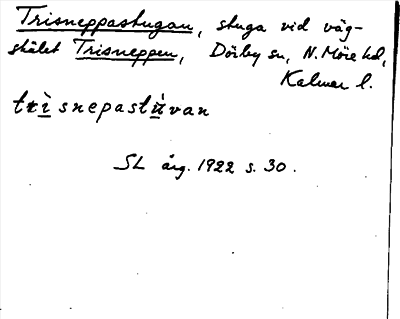 Trisneppastugan, stuga vid väg-
skälet Trisneppen, Dörby sn, N. Möre hd,
Kalmar l.
trìsnepastùvan
SL årg. 1922 s. 30.